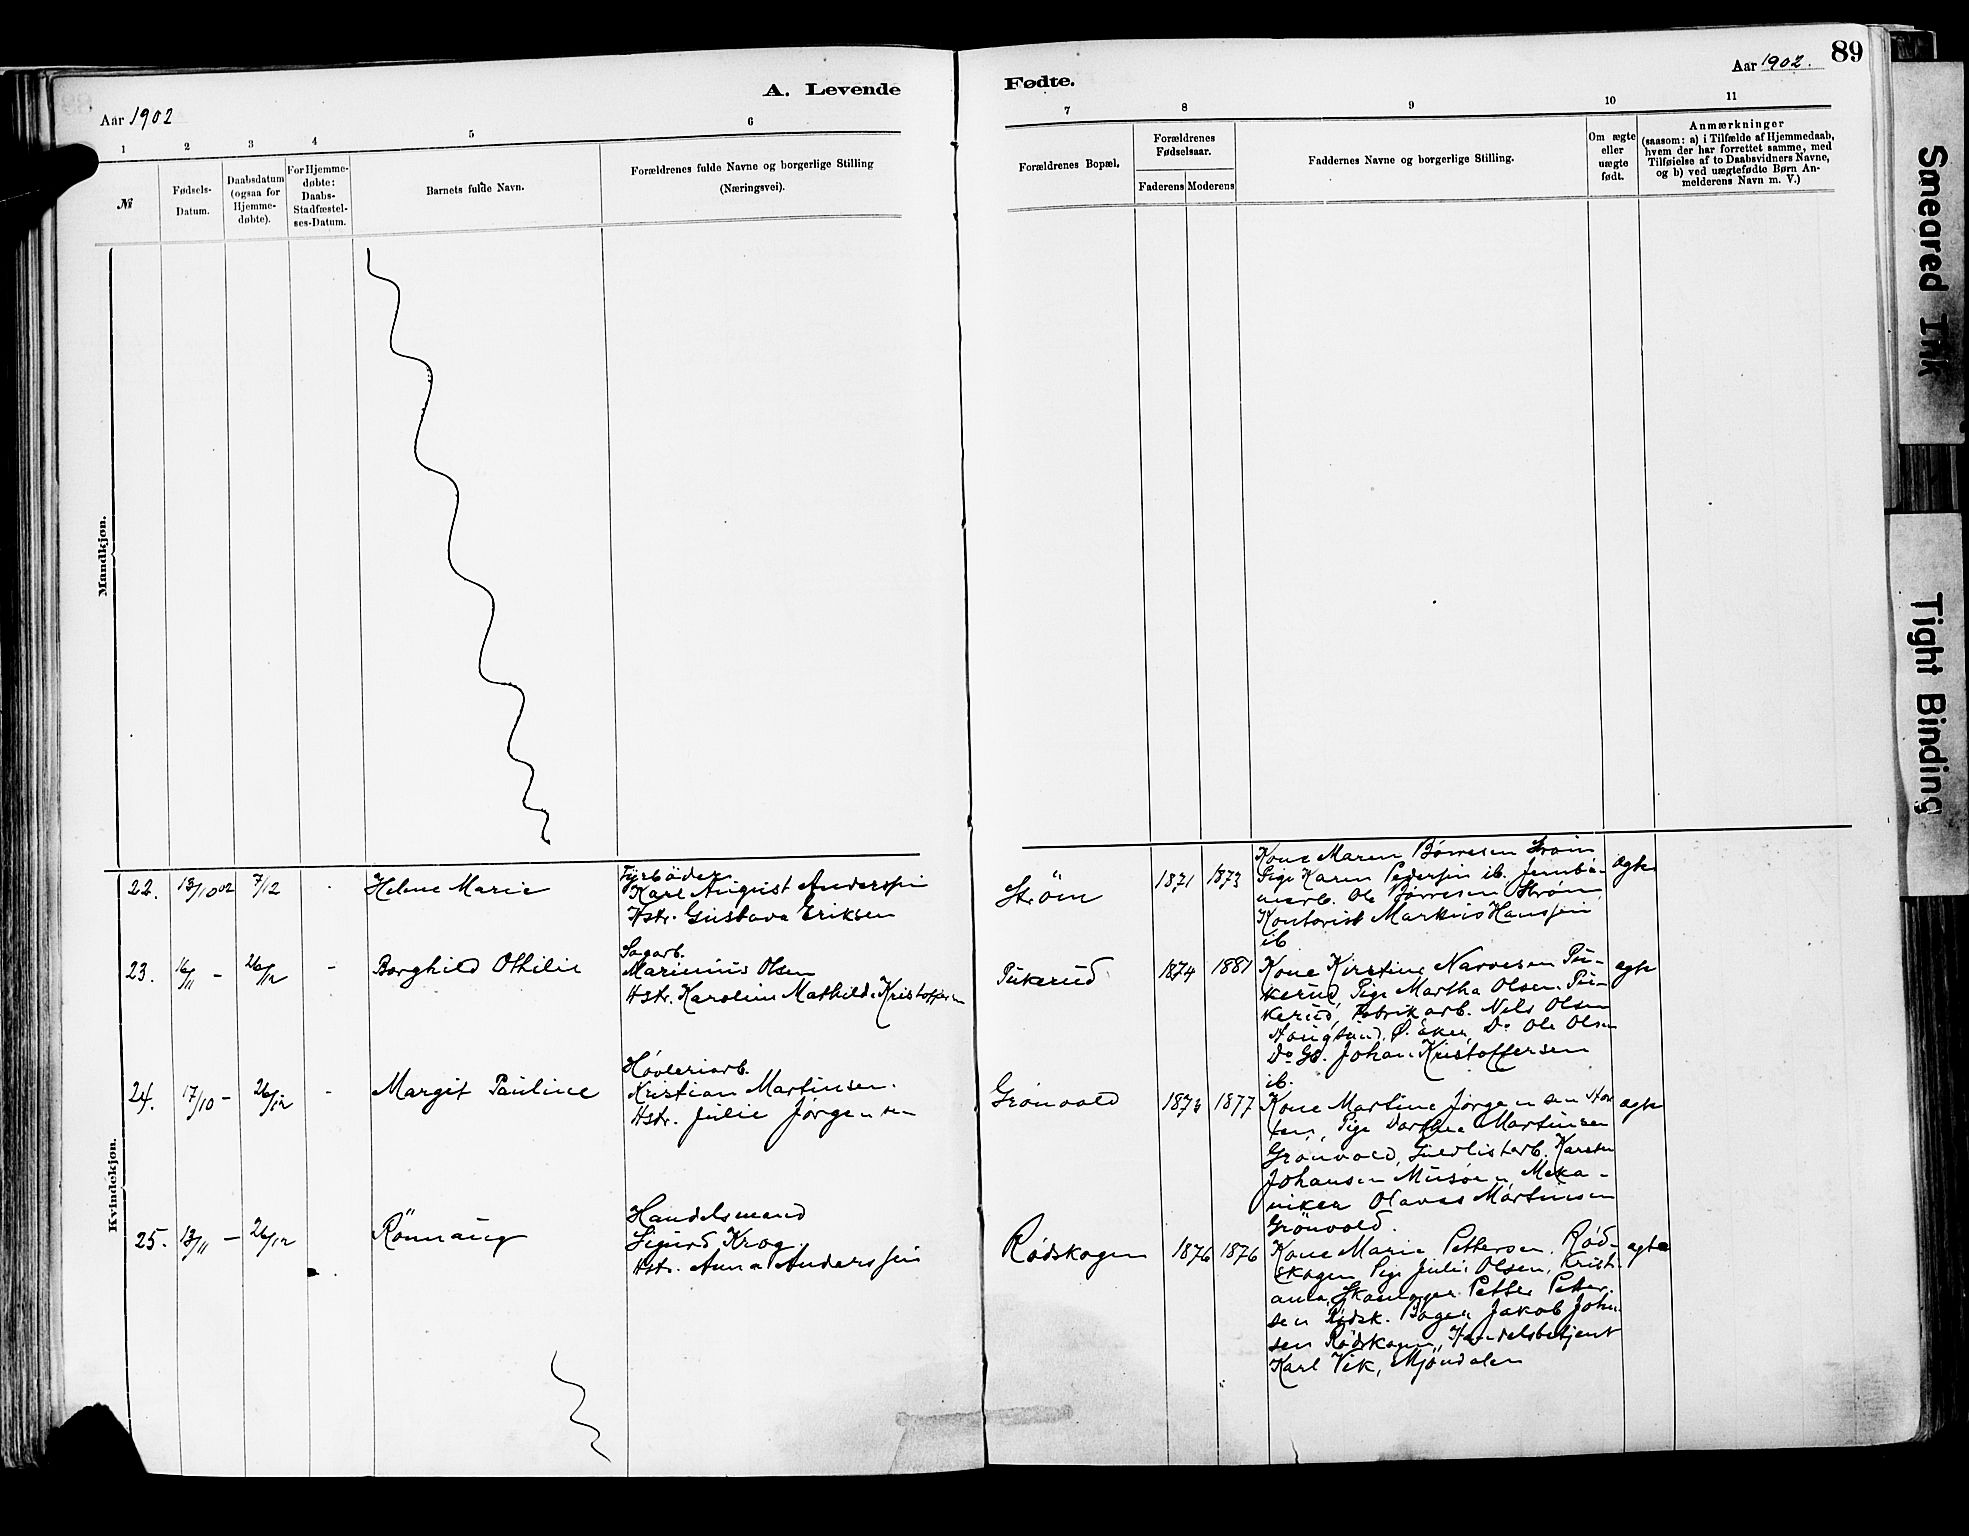 89
Aar 1902.
A. Levende
Fødte.
Aar 1902
1
2
3
4
5
6
7
8
9
10
11
№
Fødsels-
Datum.
Daabsdatum
(ogsaa for
Hjemme-
døbte).
For Hjemme-
døbte:
Daabs-
Stadfæstel-
ses-Datum.
Barnets fulde Navn.
Forældrenes fulde Navne og borgerlige Stilling
(Næringsvei).
Forældrenes Bopæl.
Forældrenes
Fødselsaar.
Faderens
Moderens
Faddernes Navne og borgerlige Stilling.
Om ægte
eller
uægte
født.
Anmærkninger
(saasom: a) i Tilfælde af Hjemmedaab,
hvem der har forrettet samme, med
Tilføielse af to Daabsvidners Navne,
og b) ved uægtefødte Børn An-
melderens Navn m. V.)
Mandkjøn.
Kvindekjøn.
22.
13/10 02
7/12
Helene Marie
Fyrbøder
Karl August Anderssen
Hstr. Gustava Eriksen
Strøm
1871
1873
Kone Maren Børresen Strøm
Pige Karen Pedersen ib. Jernba-
nearb. Ole Børresen Strøm,
Kontorist Markus Hanssen
ib
ægte
23.
16/11 -
26/12
-
Borghild Othilie
Sagarb.
Marinius Olsen
Hstr. Karoline Mathilde Kristoffersen
Pukerud
1874
1881
Kone Kirstine Narvesen Pu-
kerud, Pige Martha Olsen Pu-
kerud, Fabrikarb. Nils Olsen
Hougsund, Ø. Eker, Do Ole Olsen
Do Gb. Johan Kristoffersen
ib.
ægte
24.
17/10 -
26/12
-
Margit Pauline
Høvleriarb.
Kristian Martinsen.
Hstr. Julie Jørgensen
Grønvold
1873
1877
Kone Martine Jørgensen Hor
ten, Pige Dorthea Martinsen
Grønvold, Guldlistarb. Karsten
Johansen Musøen, Meka-
niker Olavus Martinsen
Grønvold.
ægte
25.
13/11 -
26/12
Rønnaug
Handelsmand
Sigurd Krog.
Hstr. Anna Anderssen
Rødskogen
1876
1876
Kone Marie Pettersen, Rød-
skogen Pige Julie Olsen, Kristi
ania, Skomager Petter Petter-
sen Rødsk. Bager Jakob Johan
sen Rødskogen, Handelsbetjent
Karl Vik, Mjøndalen
ægte
Smeared Ink
Tight Binding